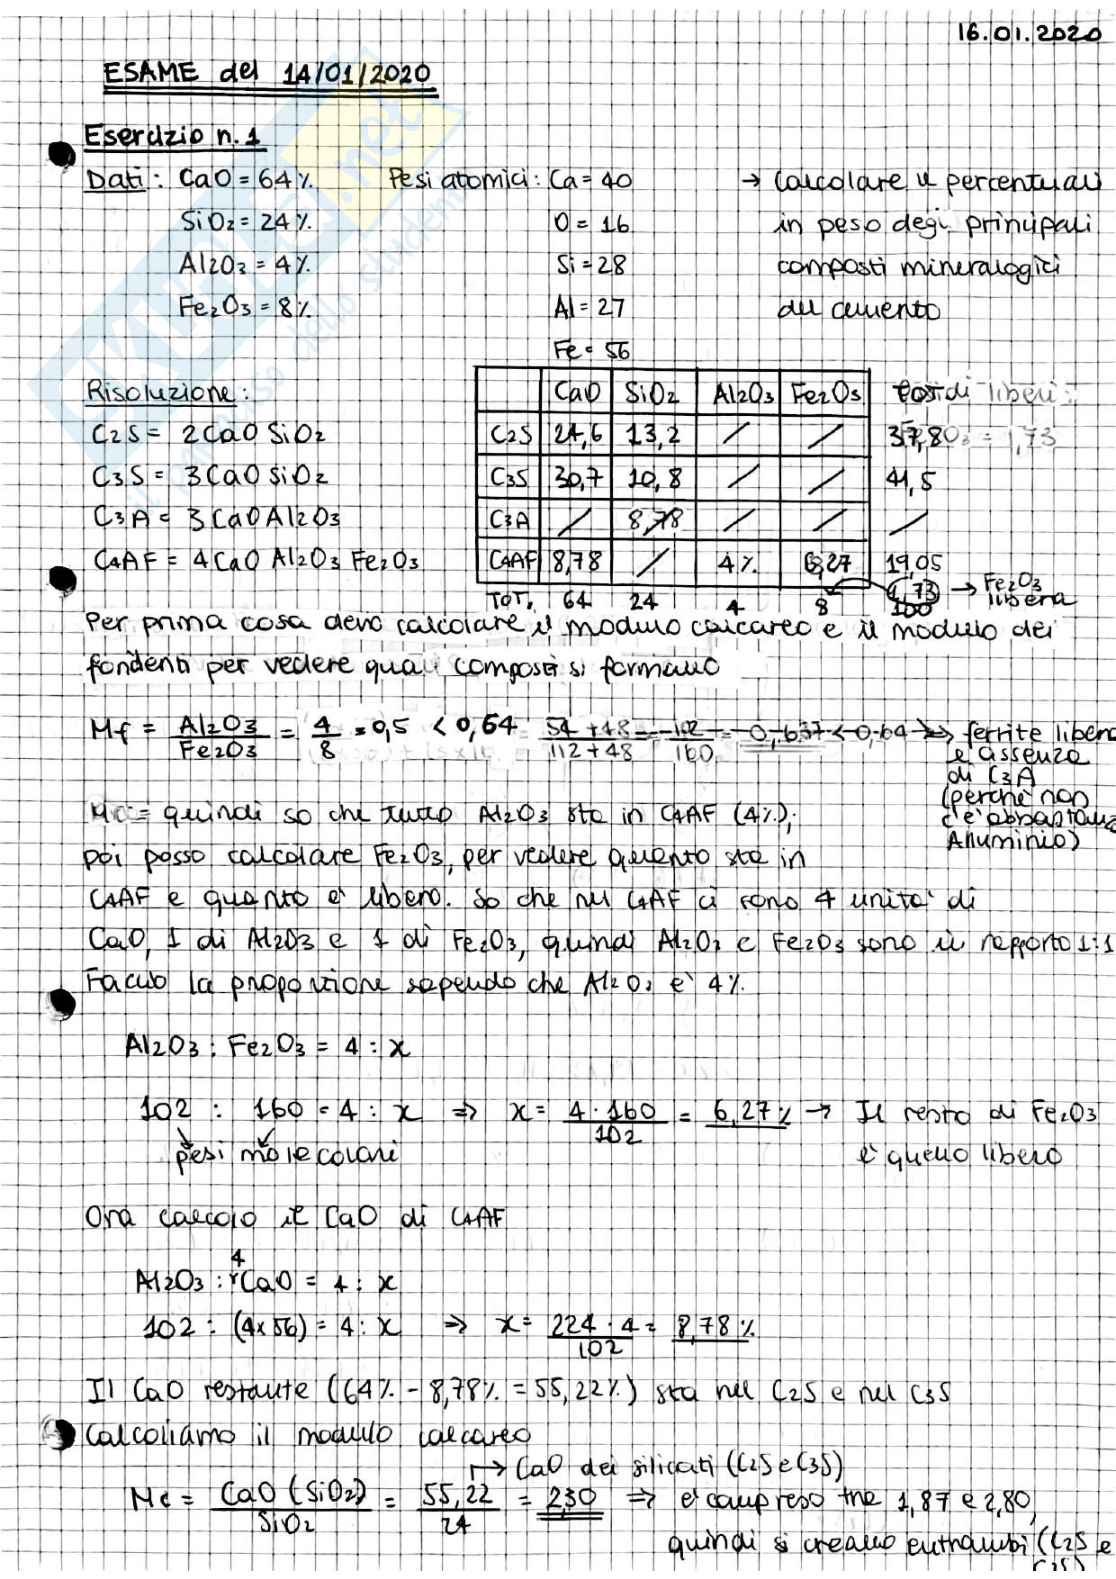 16.01.2020
ESAME del 14/01/2020
Esercizio n.1
Dati: CaO = 64% Pesi atomici: Ca = 40 → calcolare le percentuali
SiO2 = 24% O = 16 in peso degi principali
Al2O3 = 4% Si = 28 composti mineralogici
Fe2O3 = 8% Al = 27 del cemento
Fe = 56
Risoluzione:
C2S = 2CaO SiO2
C3S = 3CaO SiO2
C3A = 3CaO Al2O3
C4AF = 4CaO Al2O3 Fe2O3
CaO SiO2 Al2O3 Fe2O3 liberi:
C2S 24,6 13,2 / / 37,8 = 1,73
C3S 30,7 10,8 / / 41,5
C3A / 8,78 / / /
C4AF 8,78 / 4% 6,27 19,05
1,73 → Fe2O3 libera
TOT. 64 24 4 8 100
Per prima cosa devo calcolare il modulo calcareo e il modulo dei
fondenti per vedere quali composti si formano
Mf = Al2O3/Fe2O3 = 4/8 = 0,5 < 0,64 54+48/112+48 = 102/160 = 0,637 < 0,64 → ferrite libera
e assenza
di C3A
(perchè non
c'è abbastanza
Alluminio)
Mc = quindi so che tutto Al2O3 sta in C4AF (4%);
poi posso calcolare Fe2O3, per vedere quanto sta in
C4AF e quanto e' libero. So che nel C4AF ci sono 4 unita' di
CaO, 1 di Al2O3 e 1 di Fe2O3, quindi Al2O3 e Fe2O3 sono in rapporto 1:1
Faccio la proporzione sapendo che Al2O3 e' 4%.
Al2O3 : Fe2O3 = 4 : x
102 : 160 = 4 : x ⇒ x = 4·160/102 = 6,27% → Il resto di Fe2O3
pesi molecolari e' quello libero
Ora calcolo il CaO di C4AF
Al2O3 : 4CaO = 4 : x
102 : (4x56) = 4 : x ⇒ x = 224·4/102 = 8,78%
Il CaO restante (64% - 8,78% = 55,22%) sta nel C2S e nel C3S
Calcoliamo il modulo calcareo
→ CaO dei silicati (C2S e C3S)
Mc = CaO (SiO2)/SiO2 = 55,22/24 = 2,30 ⇒ e' compreso tra 1,87 e 2,80,
quindi si creano entrambi (C2S e
C3S)